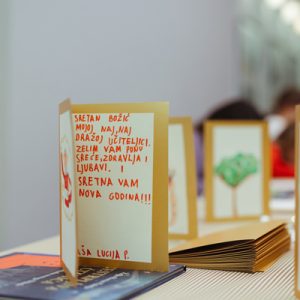 SRETAN BOŽIĆ
MOJOJ NAJ, NAJ
DRAŽOJ UČITELJICI.
ŽELIM VAM PUNO
SREĆE, ZDRAVLJA I
LJUBAVI. I
SRETNA VAM
NOVA GODINA!!!
LUCIJA P.